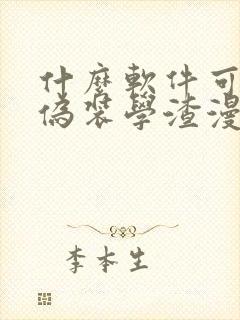 什麼軟件可
偽裝學渣漫
李本生